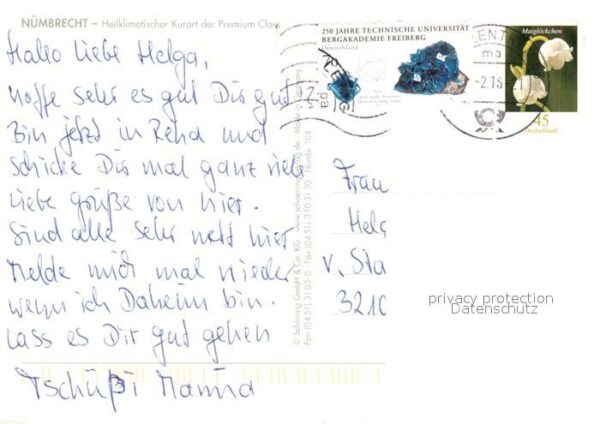 NÜMBRECHT – Heilklimatischer Kurort der Premium Class
Hallo liebe Helga,
hoffe sehr es gut Dir gut?
Bin jetzt in Reha und
schicke Dir mal ganz viele
liebe Grüße von hier.
Sind alle sehr nett hier
Melde mich mal wieder
wenn ich Daheim bin.
Lass es Dir gut gehen
Tschüßi
250 JAHRE TECHNISCHE UNIVERSITÄT
BERGAKADEMIE FREIBERG
Deutschland
Maiglöckchen
45
Deutschland
BRIEFZENTRUM
© Schöning GmbH & Co. KG · www.schoening-verlag.de
Frau
Helg
v. Sta
3210
privacy protection
Datenschutz